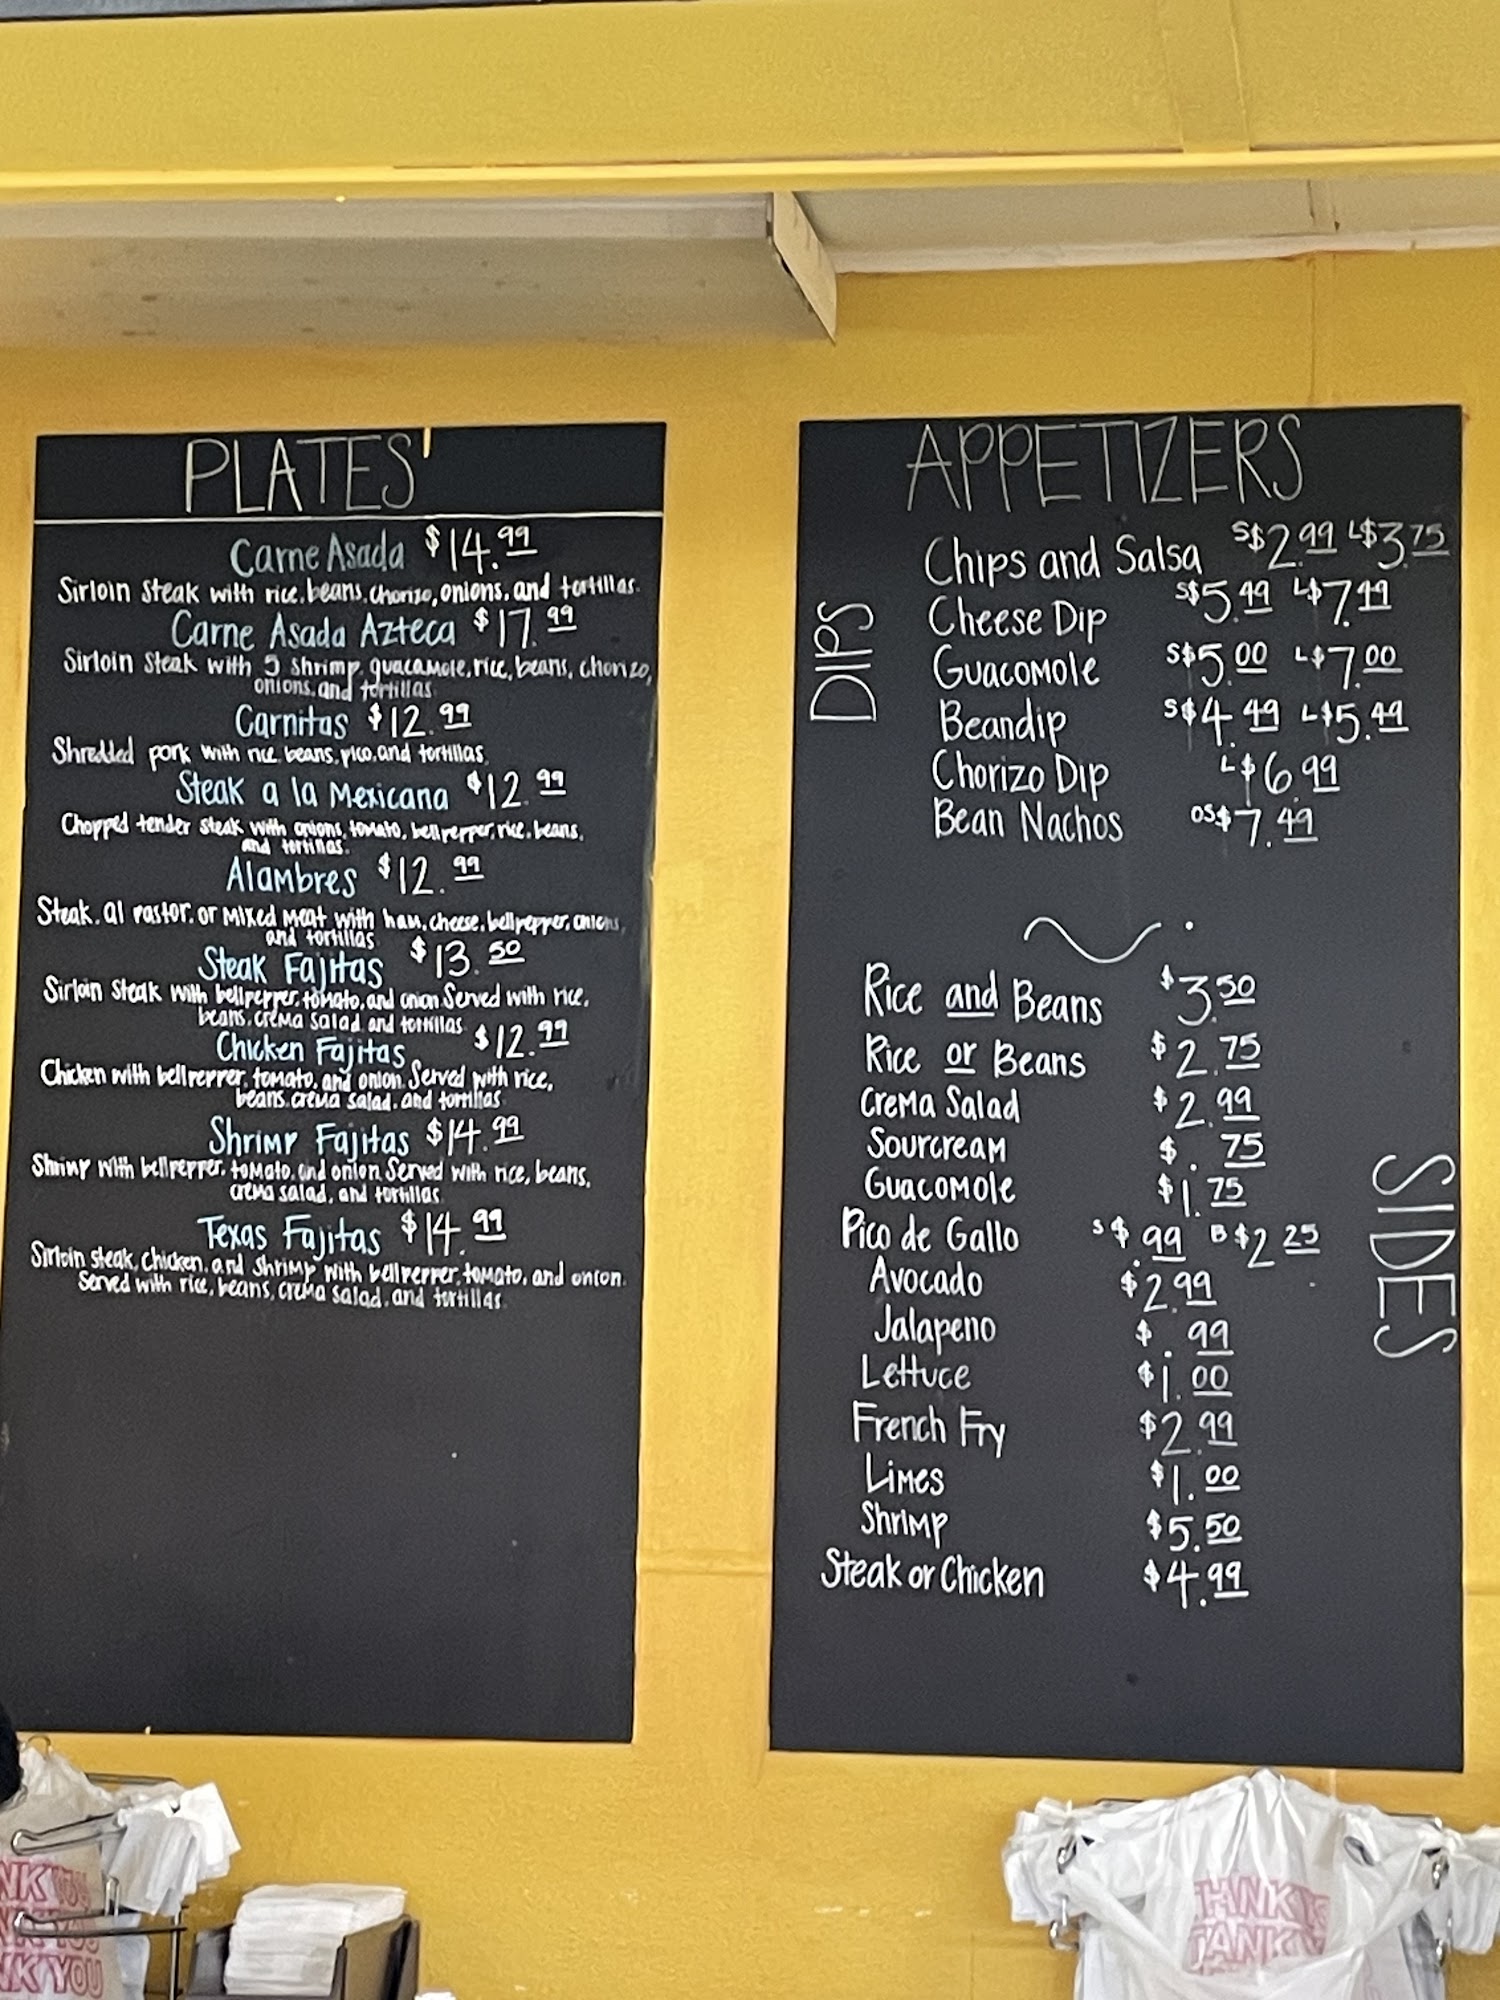 PLATES
Carne Asada $14.99
Sirloin Steak with rice, beans, chorizo, onions, and tortillas.
Carne Asada Azteca $17.99
Sirloin Steak with 5 shrimp, guacamole, rice, beans, chorizo,
onions, and tortillas.
Carnitas $12.99
Shredded pork with rice, beans, pico, and tortillas
Steak a la Mexicana $12.99
Chopped tender steak with onions, tomato, bellpepper, rice, beans,
and tortillas.
Alambres $12.99
Steak, al Pastor, or Mixed Meat with ham, cheese, bellpepper, onions,
and tortillas
Steak Fajitas $13.50
Sirloin Steak with bellpepper, tomato, and onion. Served with rice,
beans, crema salad and tortillas
Chicken Fajitas $12.99
Chicken with bellpepper, tomato, and onion. Served with rice,
beans, crema salad, and tortillas
Shrimp Fajitas $14.99
Shrimp with bellpepper, tomato, and onion. Served with rice, beans,
crema salad, and tortillas.
Texas Fajitas $14.99
Sirloin steak, chicken, and shrimp with bellpepper, tomato, and onion.
Served with rice, beans, crema salad, and tortillas.
APPETIZERS
DIPS
Chips and Salsa S$2.99 L$3.75
Cheese Dip S$5.49 L$7.49
Guacomole S$5.00 L$7.00
Beandip S$4.49 L$5.49
Chorizo Dip L$6.99
Bean Nachos OS$7.49
SIDES
Rice and Beans $3.50
Rice or Beans $2.75
Crema Salad $2.99
Sourcream $.75
Guacomole $1.75
Pico de Gallo S$.99 B$2.25
Avocado $2.99
Jalapeno $.99
Lettuce $1.00
French Fry $2.99
Limes $1.00
Shrimp $5.50
Steak or Chicken $4.99
NK YOU
NK YOU
NK YOU
THANK YO